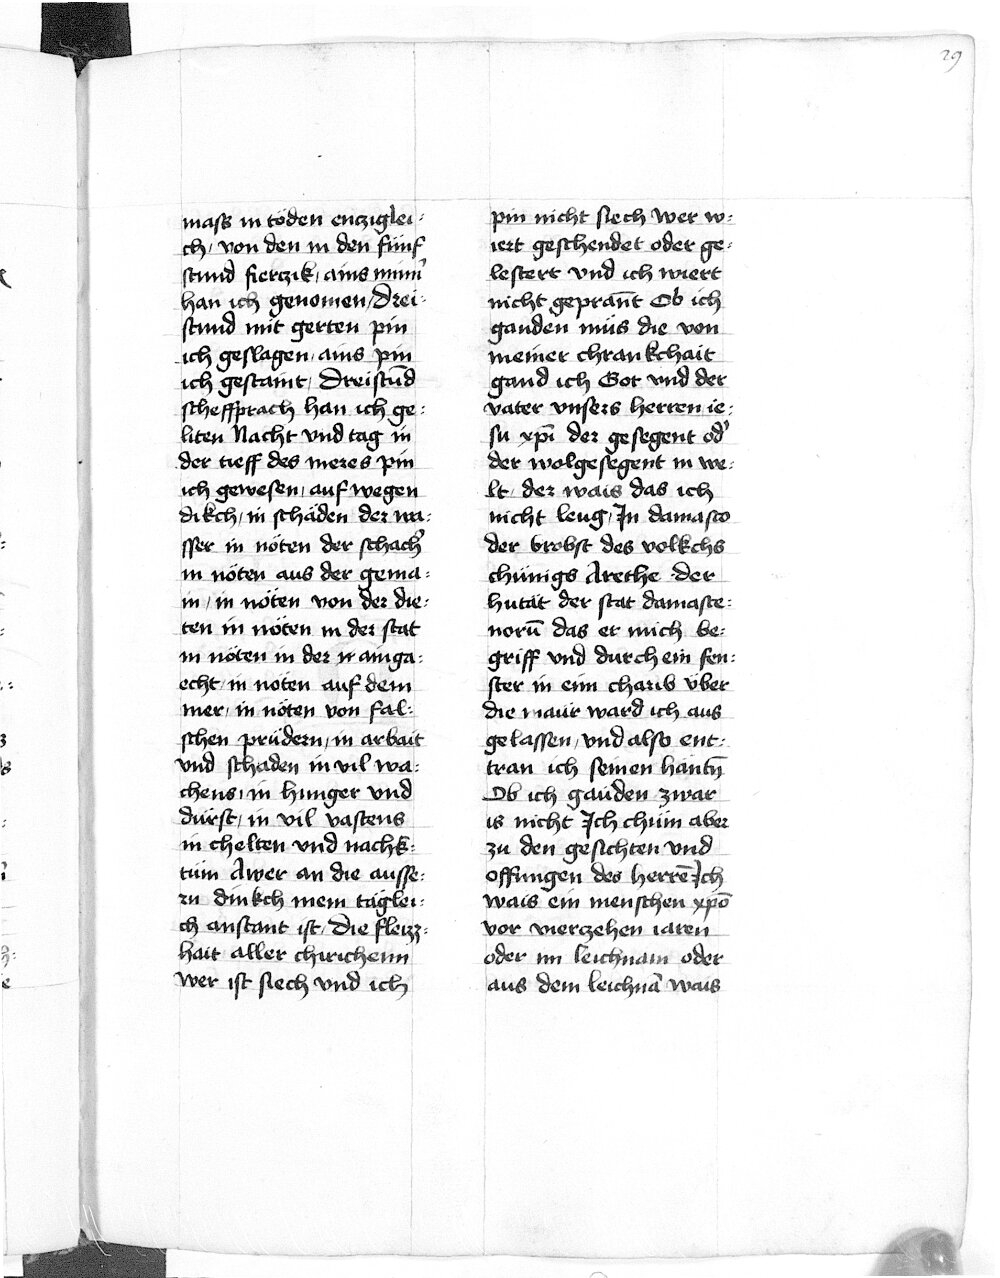 29
mass in töden encziglei:
ch, von den in den fünf
stund fierczik, ains minn̄
han ich genomen, Drei:
stund mit gerten pin
ich geslagen, ains pin
ich gestaint, Dreistūd
scheffprach han ich ge:
liten Nacht vnd tag in
der tieff des meres pin
ich gewesen, auf wegen
dikch, in schäden der wa:
sser in nöten der schach̄
in nöten aus der gema:
in, in nöten von der die:
ten in nöten in der stat
in nöten in der ainga:
echt, in nöten auf dem
mer, in nöten von fal:
schen prüdern, in arbait
vnd schaden in vil wa:
chens, in hunger vnd
dürst, in vil vastens
in chelten vnd nachk:
tüm Awer an die ausse:
rn dinkch mein täglei:
ch anstant ist, Die fleizz:
hait aller chirichenn
wer ist siech vnd ich
pin nicht siech wer w:
iert geschendet oder ge:
lestert vnd ich wiert
nicht geprañt Ob ich
gauden müs die von
meiner chrankchait
gaud ich Got vnd der
vater vnsers herren ie:
su xp̄i der gesegent od̄
der wolgesegent in we:
lt, der wais das ich
nicht leug, In damasco
der brobst des volkchs
chünigs Arethe der
hutät der stat damasce:
norū das er mich be:
griff vnd durch ein fen:
ster in eim charib über
die maür ward ich aus
gelassen, vnd also ent:
tran ich seinen hantn̄
Ob ich gaüden zwar
is nicht Ich chüm aber
zu den gesichten vnd
offungen des herrē Ich
wais ein menschen xp̄o
vor vierczehen iaren
oder im leichnam oder
aus dem leichnā wais